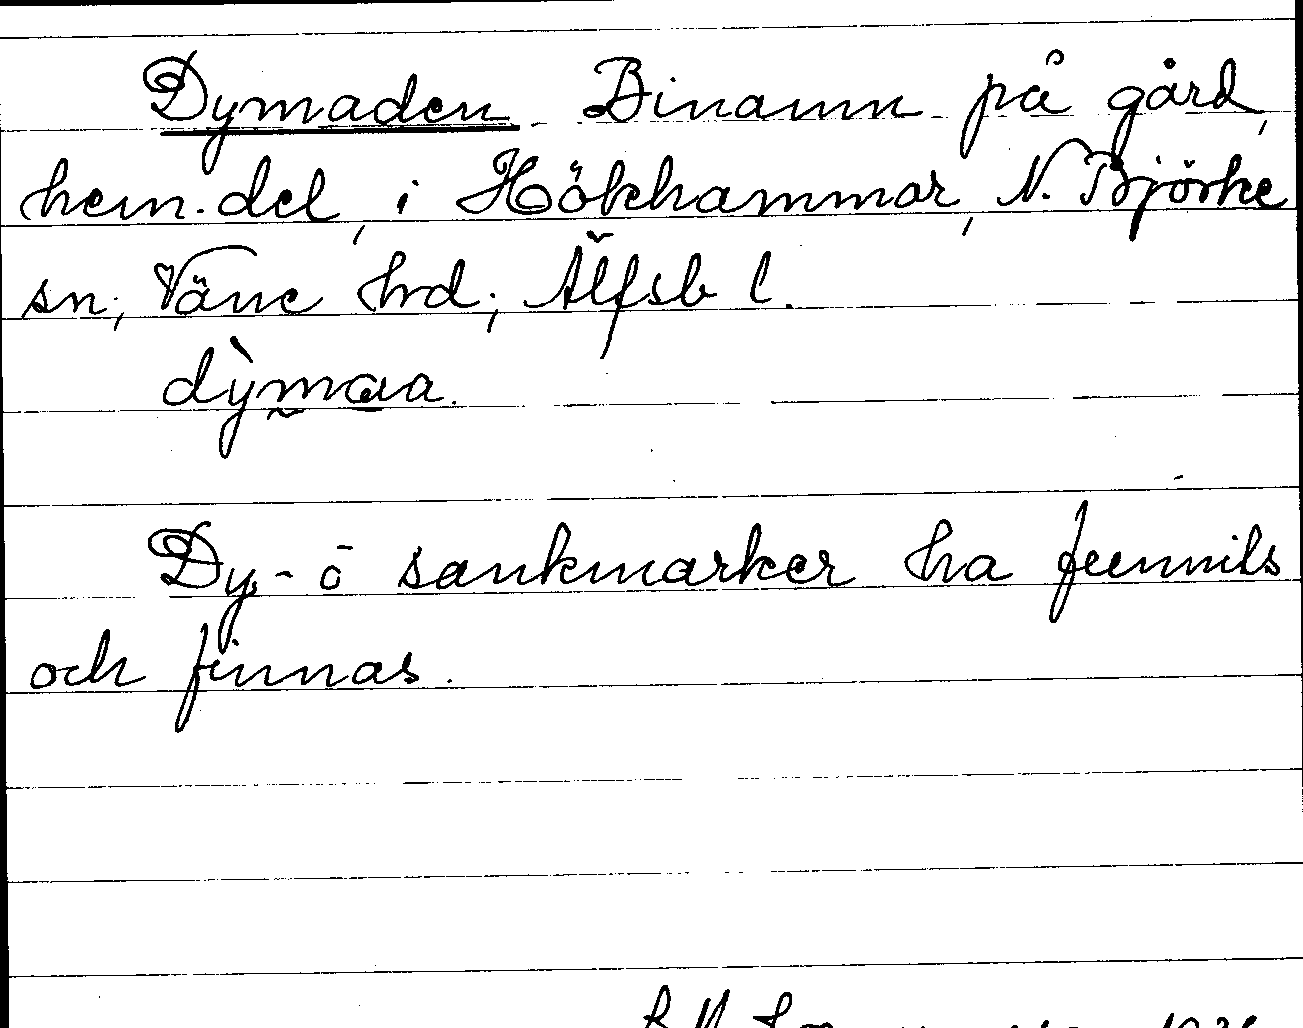 Dymaden. Binamn på gård,
hem.del, i Hökhammar, N. Björke
sn; Väne hrd; Älfsb l.
dỳmaa.
Dy- o sankmarker ha funnits
och finnas.